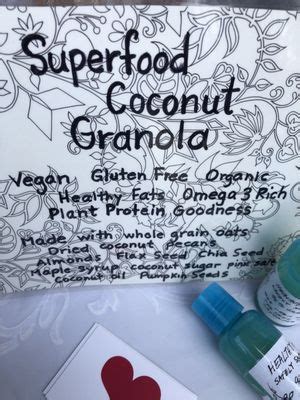 Superfood
Coconut
Granola
Vegan Gluten Free Organic
Healthy Fats Omega 3 Rich
Plant Protein Goodness
Made with whole grain oats
Dried coconut pecans
Almonds Flax Seed Chia Seed
Maple syrup coconut sugar pink salt
Coconut oil Pumpkin Seeds